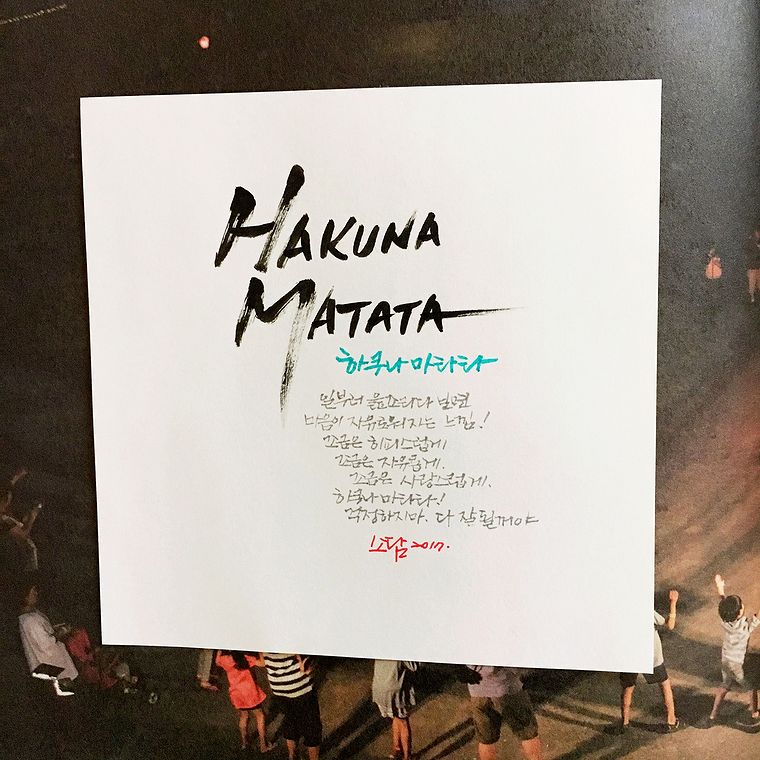 HAKUNA
MATATA
하쿠나 마타타
일부러 읊조리다 보면
마음이 자유로워지는 느낌!
조금은 히피스럽게
조금은 자유롭게.
조금은 사랑스럽게.
하쿠나 마타타!
걱정하지마. 다 잘 될꺼야
소담 2017.